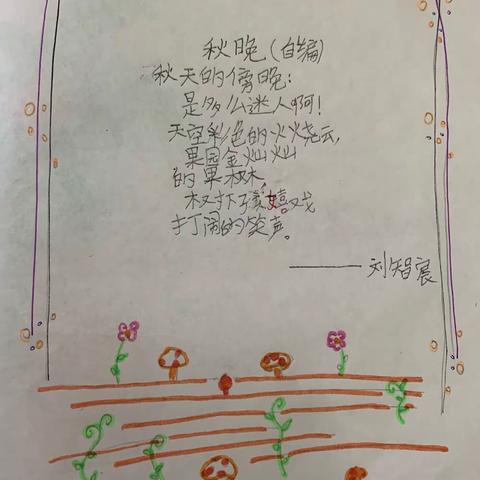 秋晚(自编)
秋天的傍晚:
是多么迷人啊!
天空彩色的火烧云,
果园金灿灿
的果树,
孩嬉戏
打闹的笑声。
——— 刘智宸